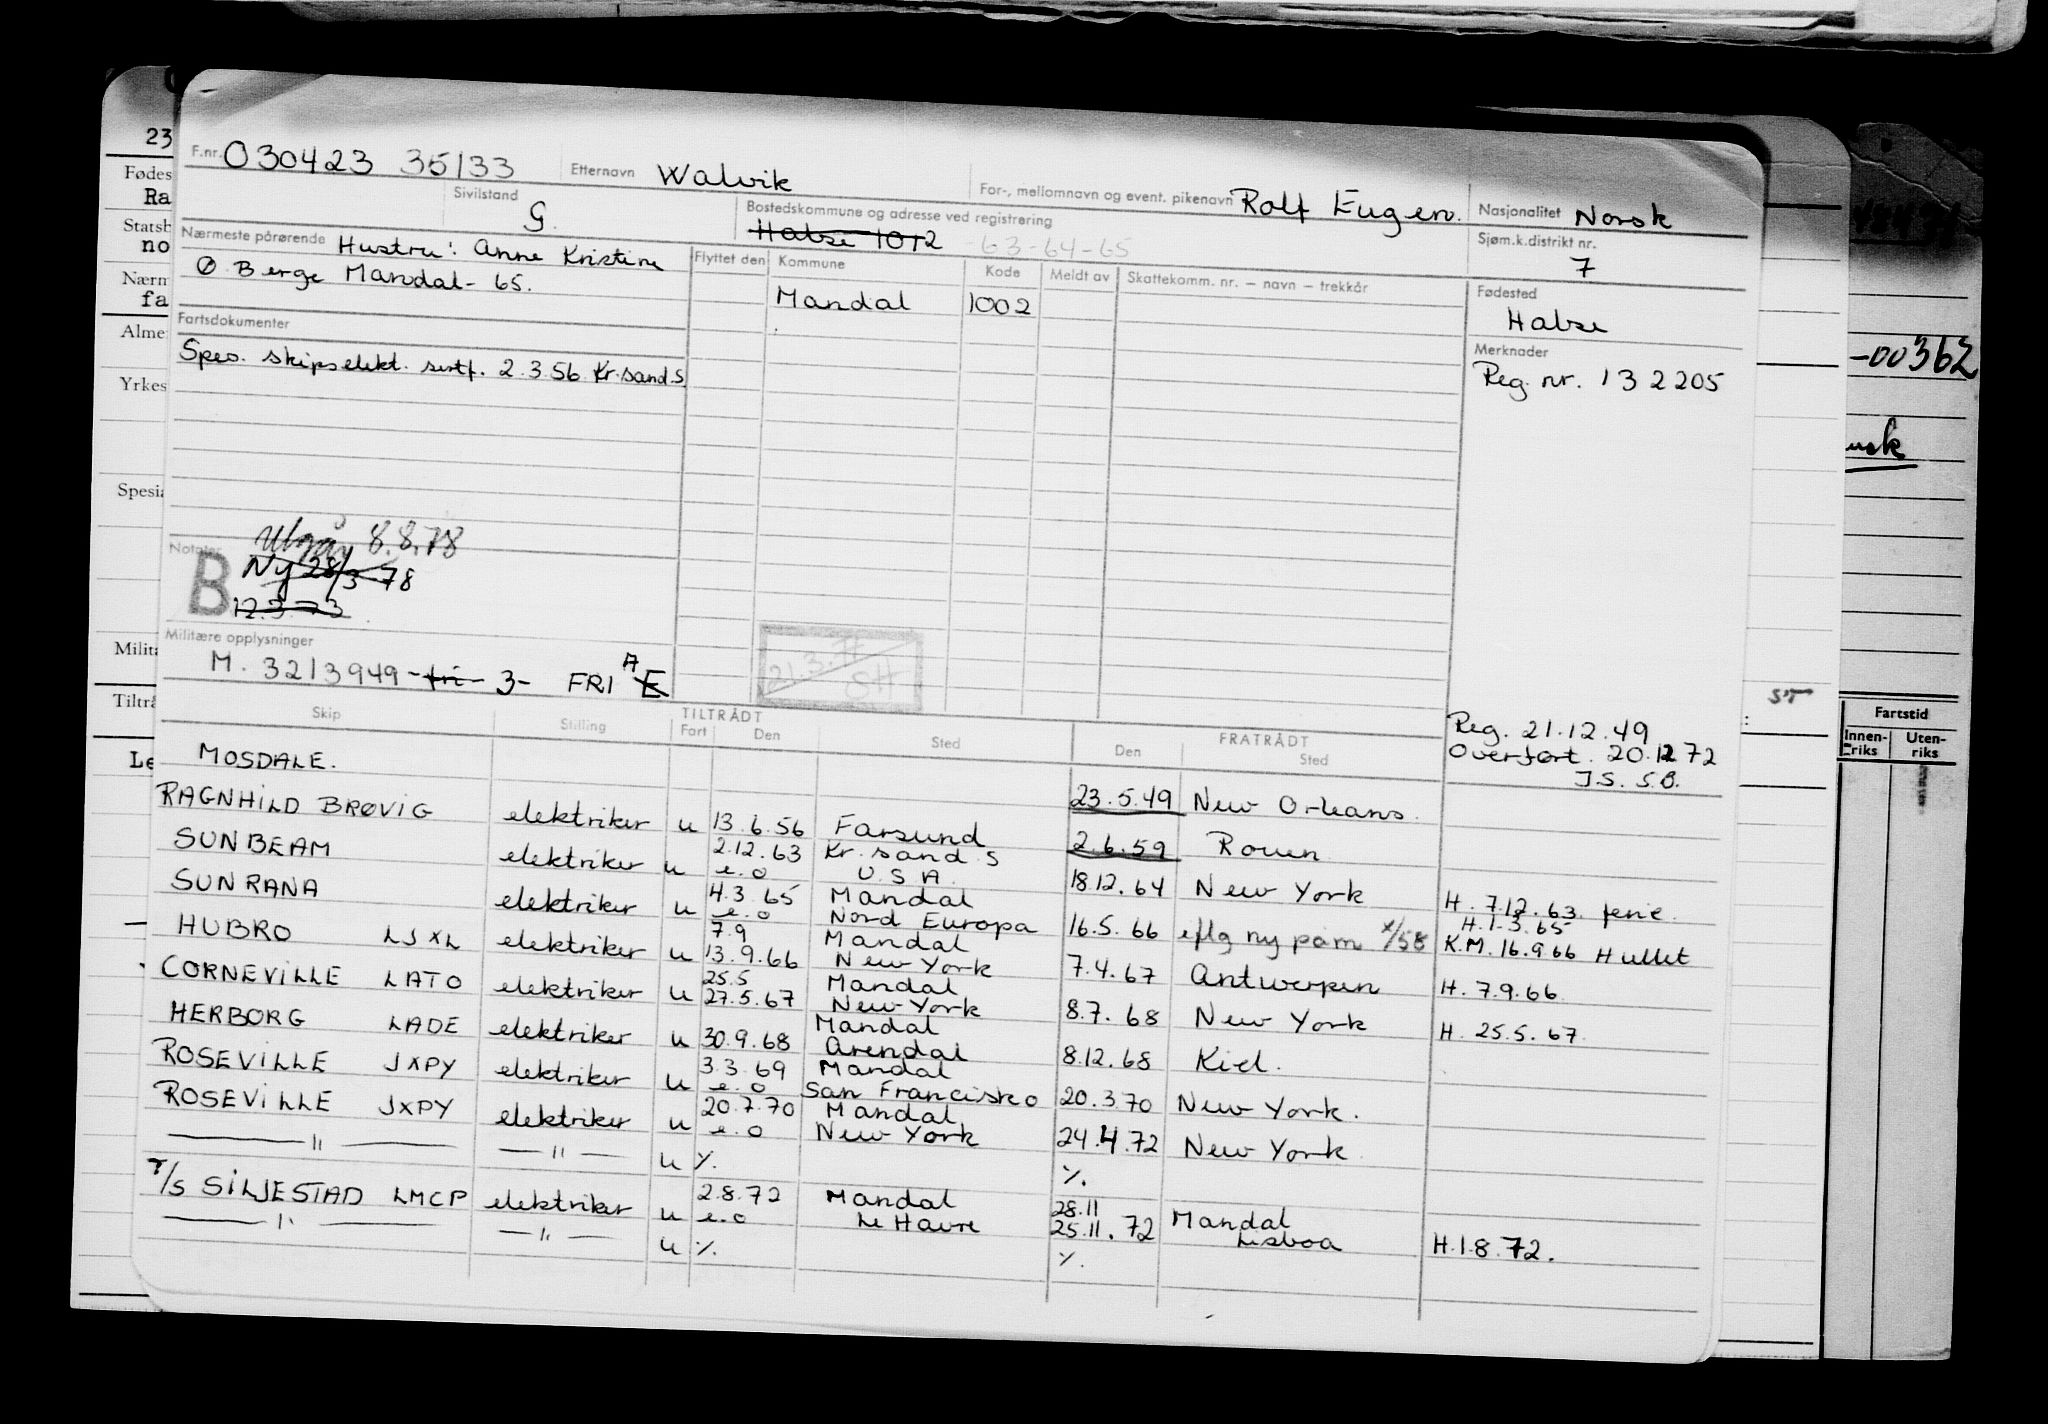 F.nr. 030423 35133 Etternavn Walvik For-, mellomnavn og event. pikenavn Rolf Eugen. Nasjonalitet Norsk
Sivilstand G. Bostedskommune og adresse ved registrering Halse 1012 -63-64-65 Sjøm.k.distrikt nr. 7
Nærmeste pårørende Hustru: Anne Kristine
Ø. Berge Mandal - 65.
Flyttet den Kommune Kode Meldt av Skattekomm. nr. – navn – trekkår Fødested
Mandal 1002 Halse
Fartsdokumenter Merknader
Spes. skipselekt. sertf. 2.3.56 Kr.sand.S. Reg. nr. 132205
Notater Utgår 8.8.78
B Ny 28/3-78
12.3.73
Militære opplysninger
M. 3213949 - fri - 3- FRI A E
21.3.77
SH
Reg. 21.12.49
Overført. 20.12.72
J.S. S.B.
Skip Stilling TILTRÅDT Fart Den Sted FRATRÅDT Den Sted
MOSDALE. 23.5.49 New Orleans.
RAGNHILD BRØVIG elektriker u 13.6.56 Farsund 2.6.59 Rouen
SUNBEAM elektriker u 2.12.63 Kr.sand S 18.12.64 New York H. 7.12.63. ferie.
e.o U.S.A.
SUNRANA elektriker u 4.3.65 Mandal 16.5.66 eflg ny påm */58 H.1.3.65
e.o Nord Europa K.M. 16.9.66 Hullet
HUBRO LJXL elektriker u 7.9 Mandal 7.4.67 Antwerpen H. 7.9.66.
13.9.66 New York
CORNEVILLE LATO elektriker u 25.5 Mandal 8.7.68 New York H. 25.5.67.
27.5.67 New York
HERBORG LADE elektriker u 30.9.68 Mandal 8.12.68 Kiel.
Arendal
ROSEVILLE JXPY elektriker u 3.3.69 Mandal 20.3.70 New York.
e.o San Francisko
ROSEVILLE JXPY elektriker u 20.7.70 Mandal 24.4.72 New York
e.o New York
— " — — " — u ٪. ٪.
T/S SILJESTAD LMCP elektriker u 2.8.72 Mandal 28.11 Mandal
e.o Le Havre 25.11.72 Lisboa H.1.8.72.
— " — — " — u ٪. ٪.
23
Fødes
Ra
Statsb
no
Nærm
fa
Alme
Yrkes
Spesia
Milita
Tiltrå
Le
-00362
ST
Fartstid
Innen-
riks
Uten-
riks